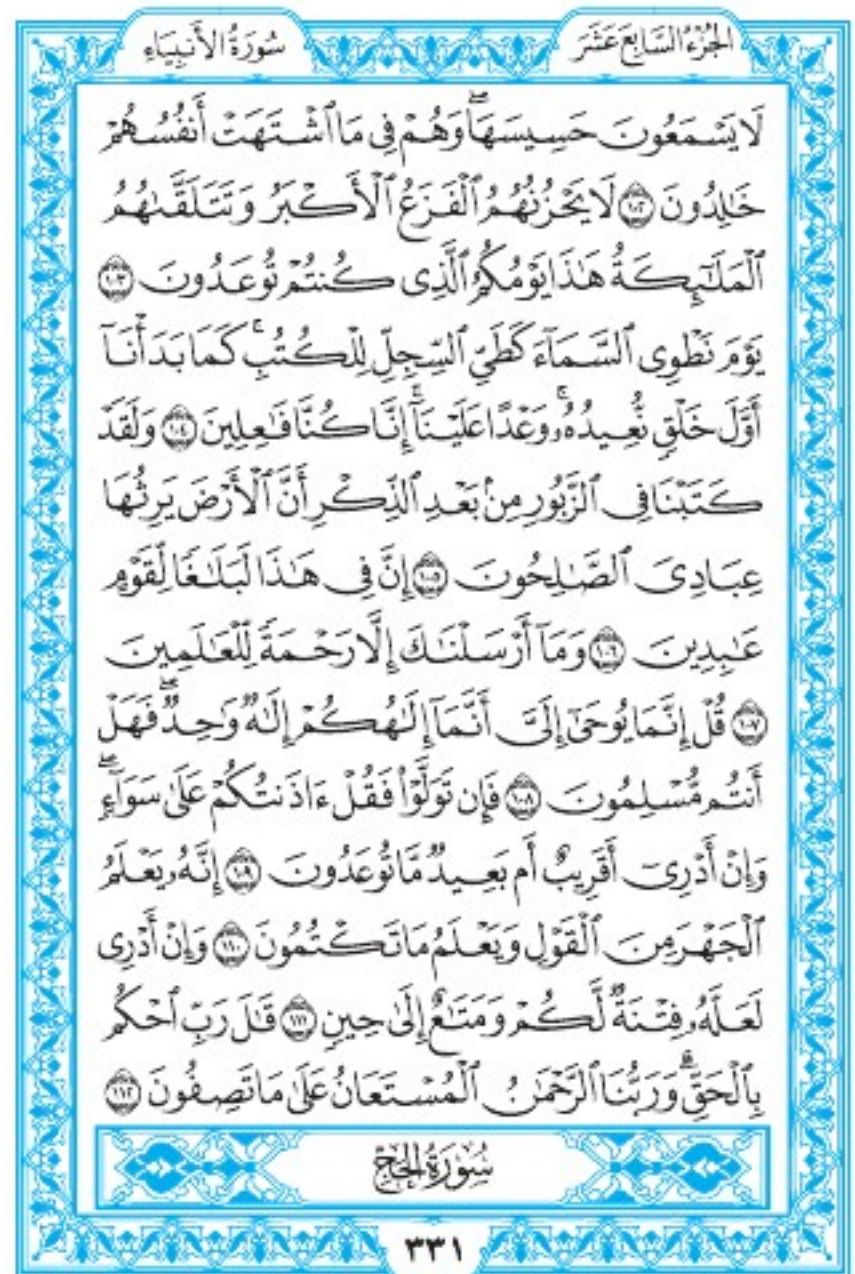 الجُزْءُ السَّابِعَ عَشَرَ
سُورَةُ الأَنبِيَاءِ
لَا يَسْمَعُونَ حَسِيسَهَاۖ وَهُمْ فِي مَا ٱشْتَهَتْ أَنفُسُهُمْ
خَٰلِدُونَ ١٠٢ لَا يَحْزُنُهُمُ ٱلْفَزَعُ ٱلْأَكْبَرُ وَتَتَلَقَّىٰهُمُ
ٱلْمَلَٰٓئِكَةُ هَٰذَا يَوْمُكُمُ ٱلَّذِي كُنتُمْ تُوعَدُونَ ١٠٣
يَوْمَ نَطْوِي ٱلسَّمَآءَ كَطَيِّ ٱلسِّجِلِّ لِلْكُتُبِۚ كَمَا بَدَأْنَآ
أَوَّلَ خَلْقٍ نُّعِيدُهُۥۚ وَعْدًا عَلَيْنَآۚ إِنَّا كُنَّا فَٰعِلِينَ ١٠٤ وَلَقَدْ
كَتَبْنَا فِي ٱلزَّبُورِ مِنۢ بَعْدِ ٱلذِّكْرِ أَنَّ ٱلْأَرْضَ يَرِثُهَا
عِبَادِيَ ٱلصَّٰلِحُونَ ١٠٥ إِنَّ فِي هَٰذَا لَبَلَٰغًا لِّقَوْمٍ
عَٰبِدِينَ ١٠٦ وَمَآ أَرْسَلْنَٰكَ إِلَّا رَحْمَةً لِّلْعَٰلَمِينَ
١٠٧ قُلْ إِنَّمَا يُوحَىٰٓ إِلَيَّ أَنَّمَآ إِلَٰهُكُمْ إِلَٰهٌ وَٰحِدٌۖ فَهَلْ
أَنتُم مُّسْلِمُونَ ١٠٨ فَإِن تَوَلَّوْاْ فَقُلْ ءَاذَنتُكُمْ عَلَىٰ سَوَآءٍۖ
وَإِنْ أَدْرِيٓ أَقَرِيبٌ أَم بَعِيدٌ مَّا تُوعَدُونَ ١٠٩ إِنَّهُۥ يَعْلَمُ
ٱلْجَهْرَ مِنَ ٱلْقَوْلِ وَيَعْلَمُ مَا تَكْتُمُونَ ١١٠ وَإِنْ أَدْرِي
لَعَلَّهُۥ فِتْنَةٌ لَّكُمْ وَمَتَٰعٌ إِلَىٰ حِينٍ ١١١ قَٰلَ رَبِّ ٱحْكُم
بِٱلْحَقِّۗ وَرَبُّنَا ٱلرَّحْمَٰنُ ٱلْمُسْتَعَانُ عَلَىٰ مَا تَصِفُونَ ١١٢
سُورَةُ الحَجِّ
٣٣١